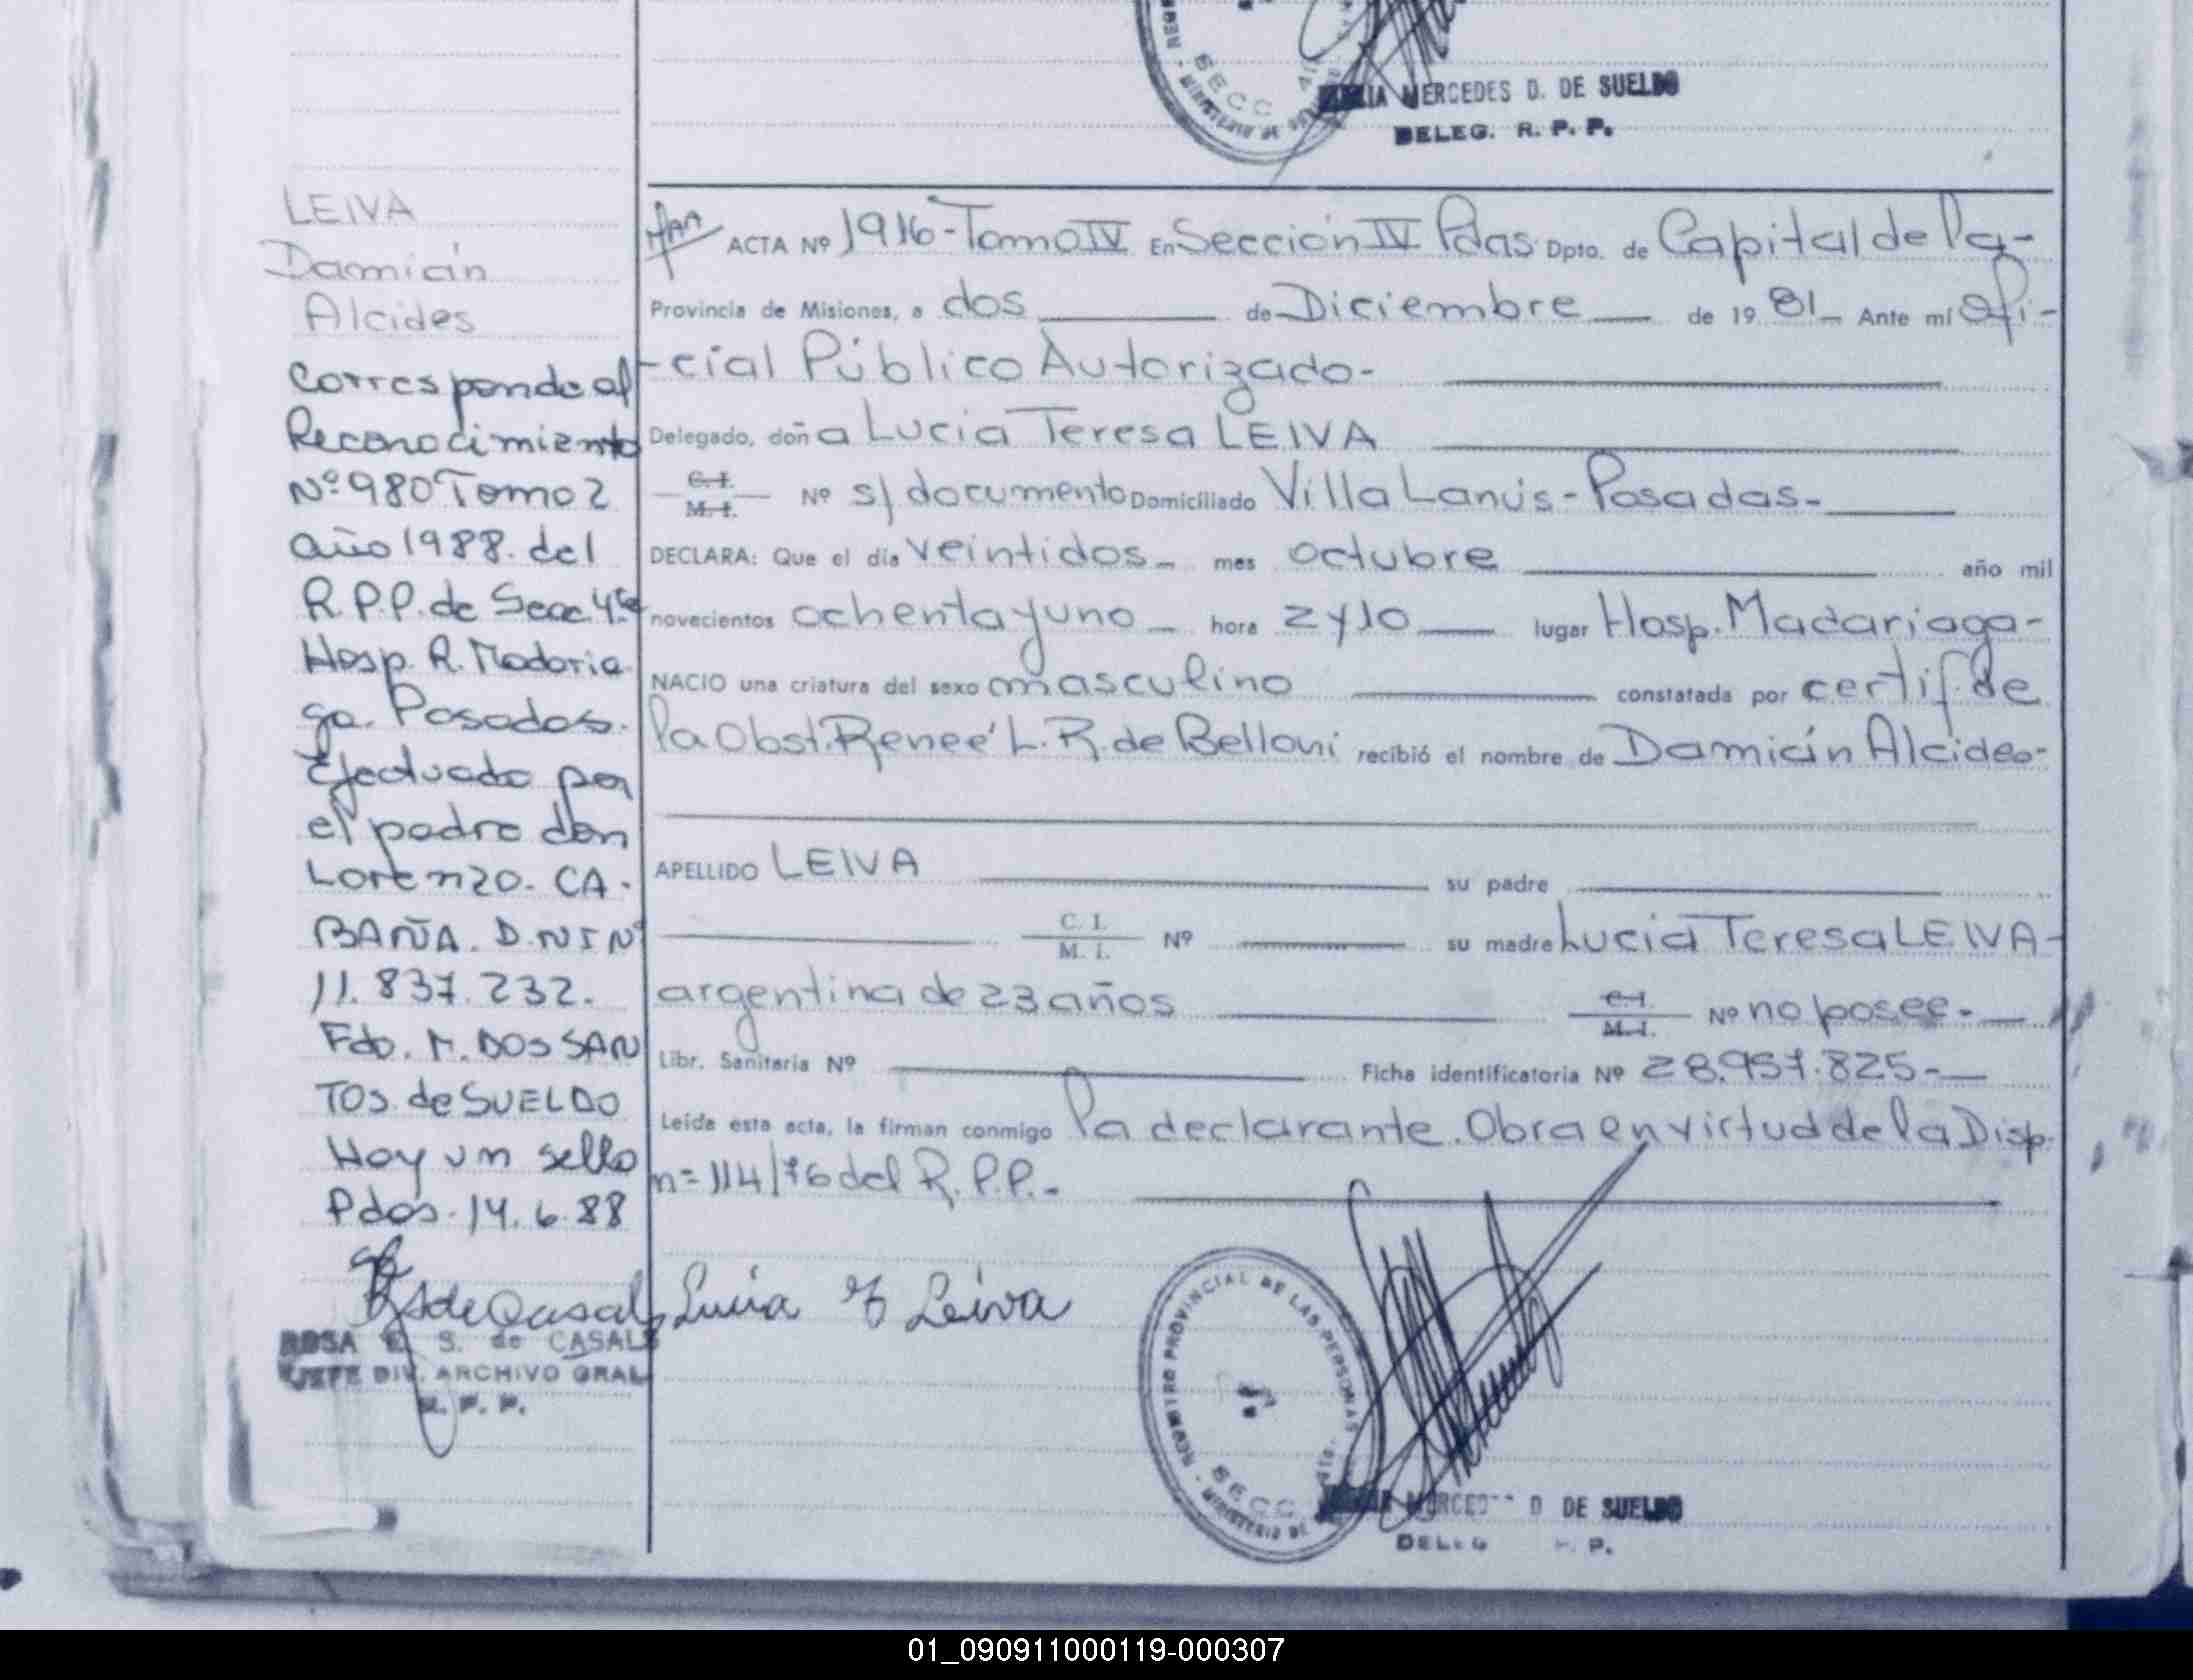 MERCEDES D. DE SUELDO
DELEG. R. P. P.
SECC
LEIVA
Damián
Alcides
Corresponde al
Reconocimiento
Nº 980 Tomo 2
año 1988. del
R.P.P. de Secc. 4ta
Hosp. R. Madaria
ga. Posadas.
Efectuado por
el padre don
Lorenzo. CA-
BAÑA. D.N.I Nº
11.837.232.
Fdo. M. DOS SAN
TOS. de SUELDO
Hay un sello
Pdas. 14.6.88
ROSA E. S. de CASALS
JEFE DIV. ARCHIVO GRAL
R. P. P.
ACTA Nº 1916-Tomo IV En Sección IV Pdas. Dpto. de Capital de la-
Provincia de Misiones, a dos de Diciembre de 19 81 Ante mí Ofi-
-cial Público Autorizado-
Delegado, doña Lucia Teresa LEIVA
C. I. M. I. Nº s/documento Domiciliado Villa Lanús-Posadas-
DECLARA: Que el día veintidos- mes octubre año mil
novecientos ochenta y uno hora 2 y 10 lugar Hosp. Madariaga-
NACIO una criatura del sexo masculino constatada por certif. de
la Obst. Reneé L. R. de Belloni recibió el nombre de Damián Alcides-
APELLIDO LEIVA su padre
C. I. M. I. Nº su madre Lucia Teresa LEIVA-
argentina de 23 años C. I. M. I. Nº no posee.-
Libr. Sanitaria Nº Ficha identificatoria Nº 28.957.825.-
Leída esta acta, la firman conmigo la declarante. Obra en virtud de la Disp.
n= 114/76 del R.P.P.-
Lucia T Leiva
REGISTRO PROVINCIAL DE LAS PERSONAS - MINISTERIO DE
SECC
D. DE SUELDO
DELEG P.
01_090911000119-000307